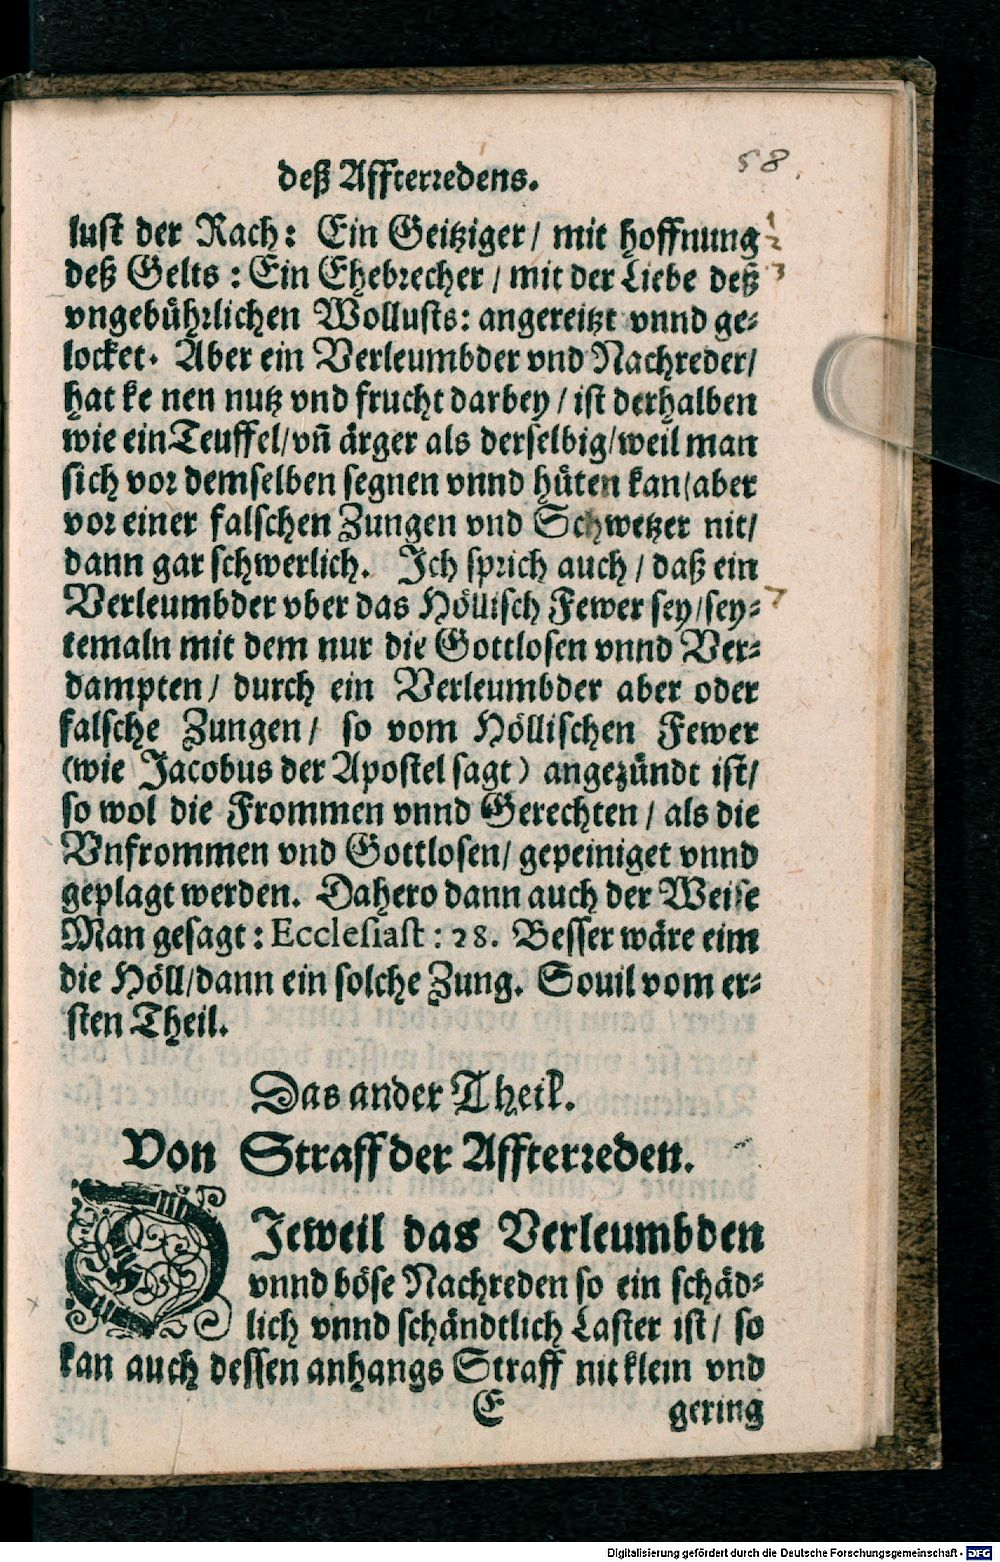 58.
deß Affterredens.
lust der Rach: Ein Geitziger/ mit hoffnung
deß Gelts: Ein Ehebrecher/ mit der Liebe deß
vngebührlichen Wollusts: angereitzt vnnd ge-
locket. Aber ein Verleumbder vnd Nachreder/
hat ke nen nutz vnd frucht darbey/ ist derhalben
wie ein Teuffel/ vñ ärger als derselbig/ weil man
sich vor demselben segnen vnnd hüten kan/ aber
vor einer falschen Zungen vnd Schwetzer nit/
dann gar schwerlich. Ich sprich auch/ daß ein
Verleumbder vber das Höllisch Fewer sey/ sey-
temaln mit dem nur die Gottlosen vnnd Ver-
dampten/ durch ein Verleumbder aber oder
falsche Zungen/ so vom Höllischen Fewer
(wie Jacobus der Apostel sagt) angezündt ist/
so wol die Frommen vnnd Gerechten/ als die
Vnfrommen vnd Gottlosen/ gepeiniget vnnd
geplagt werden. Dahero dann auch der Weise
Man gesagt: Ecclesiast: 28. Besser wäre eim
die Höll/ dann ein solche Zung. Souil vom er-
sten Theil.
Das ander Theil.
Von Straff der Affterreden.
DIeweil das Verleumbden
vnnd böse Nachreden so ein schäd-
lich vnnd schändtlich Laster ist/ so
kan auch dessen anhangs Straff nit klein vnd
E gering
Digitalisierung gefördert durch die Deutsche Forschungsgemeinschaft - DFG